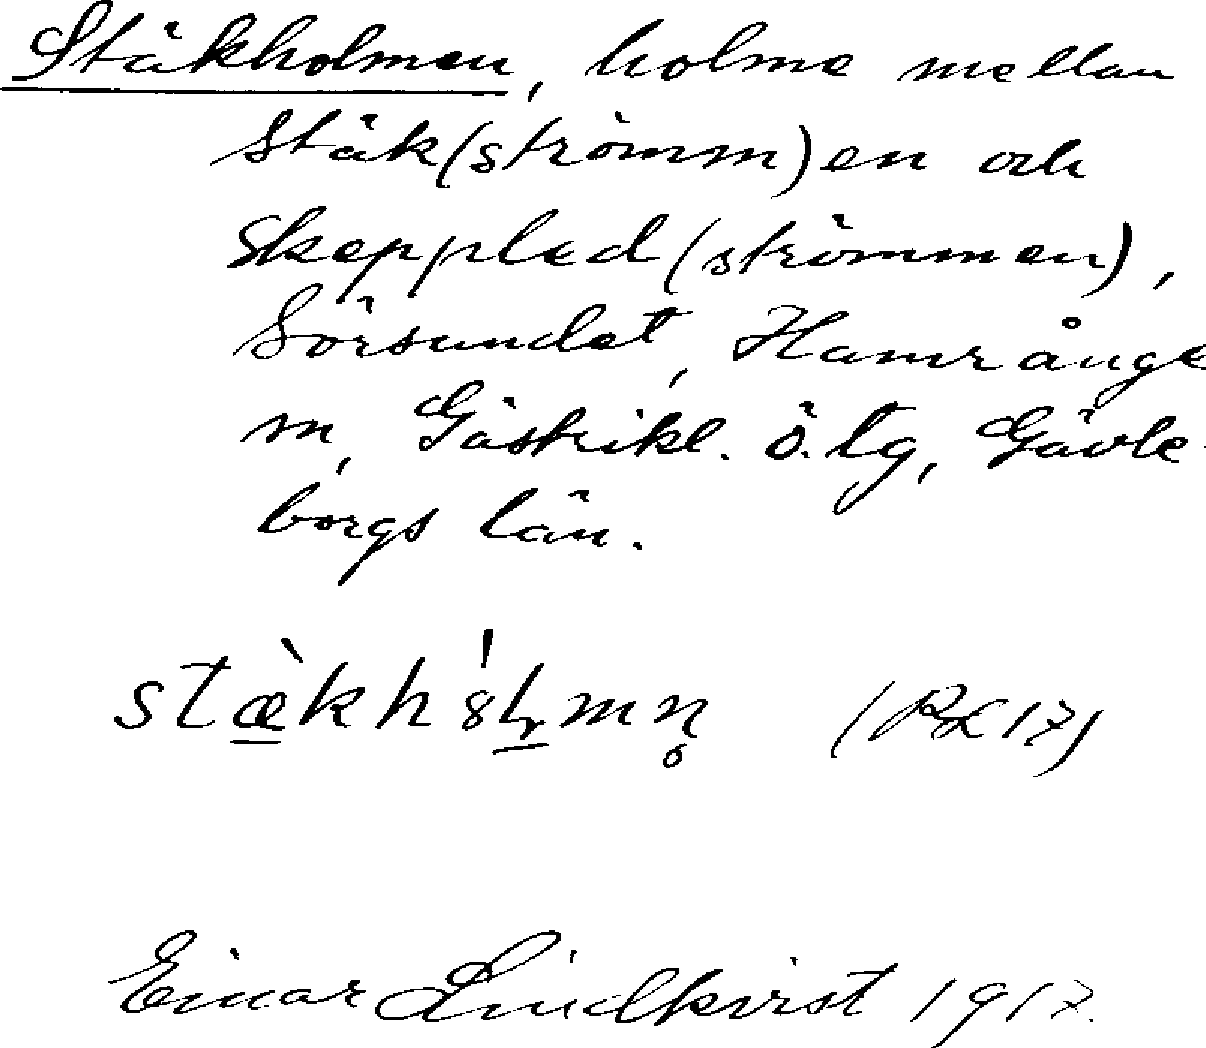 Stäkholmen, holme mellan
Stäk(strömm)en och
Skeppled(strömmen),
Sörsundet, Hamrånge
m, Gästrikl. ö. tg, Gävle-
borgs län.
stæ̀kh
Einar Lindkvist 1917.